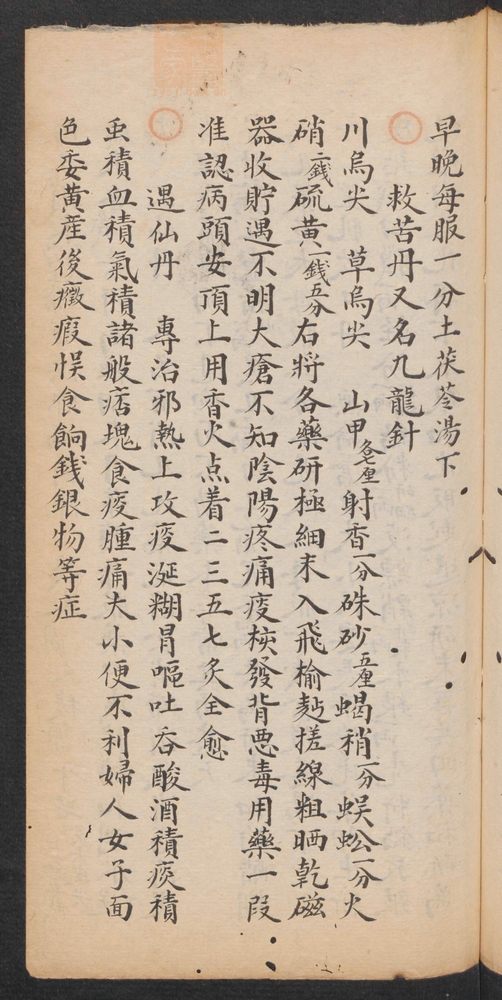 早晚每服一分土茯苓湯下
救苦丹又名九龍針
川烏尖 草烏尖 山甲各七厘射香一分硃砂五厘蝎稍一分蜈蚣一分火
硝一錢硫黄一錢五分右將各藥研極細末入飛榆麪搓線粗晒乾磁
器收貯遇不明大瘡不知陰陽疼痛疫核發背悪毒用藥一段
准認病頭安頂上用香火点着二三五七灸全愈
遇仙丹 專治邪熱上攻疫涎糊胃嘔吐吞酸酒積痰積
虫積血積氣積諸般痞塊食疫腫痛大小便不利婦人女子面
色委黄産後癥瘕悮食餉錢銀物等症